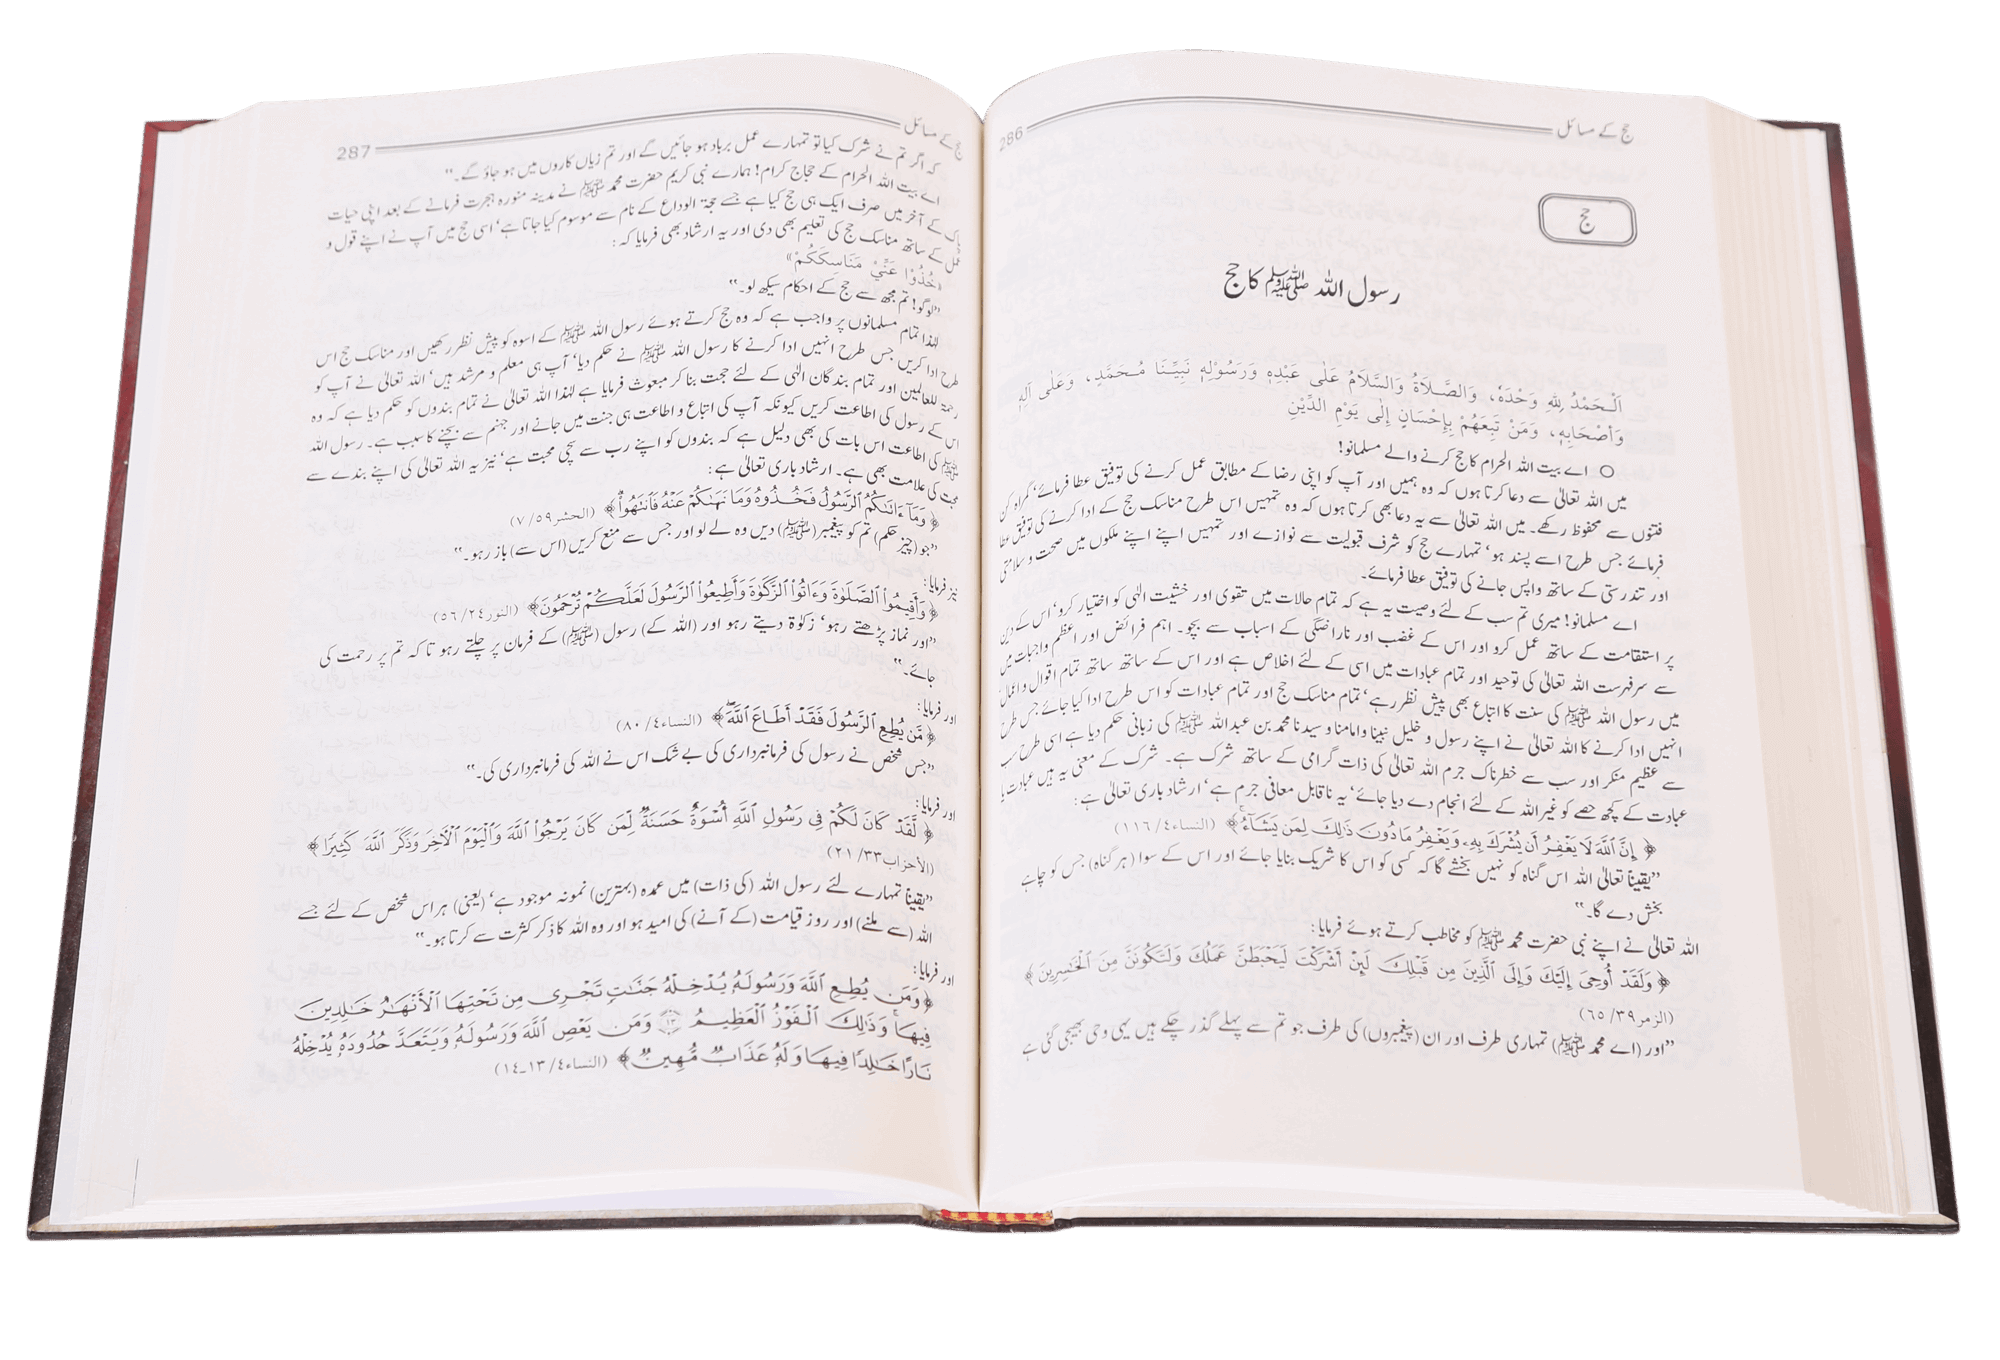 حج کے مسائل 286
حج
رسول اللہ ﷺ کا حج
اَلْحَمْدُ لِلّٰهِ وَحْدَهٗ، وَالصَّلَاةُ وَالسَّلَامُ عَلٰى عَبْدِهٖ وَرَسُوْلِهٖ نَبِيِّنَا مُحَمَّدٍ، وَعَلٰى اٰلِهٖ
وَأَصْحَابِهٖ، وَمَنْ تَبِعَهُمْ بِإِحْسَانٍ إِلٰى يَوْمِ الدِّيْنِ
○ اے بیت اللہ الحرام کا حج کرنے والے مسلمانو!
میں اللہ تعالیٰ سے دعا کرتا ہوں کہ وہ ہمیں اور آپ کو اپنی رضا کے مطابق عمل کرنے کی توفیق عطا فرمائے‘ گمراہ کن
فتنوں سے محفوظ رکھے۔ میں اللہ تعالیٰ سے یہ دعا بھی کرتا ہوں کہ وہ تمہیں اس طرح مناسک حج کے ادا کرنے کی توفیق عطا
فرمائے جس طرح اسے پسند ہو‘ تمہارے حج کو شرف قبولیت سے نوازے اور تمہیں اپنے اپنے ملکوں میں صحت و سلامتی
اور تندرستی کے ساتھ واپس جانے کی توفیق عطا فرمائے۔
اے مسلمانو! میری تم سب کے لئے وصیت یہ ہے کہ تمام حالات میں تقویٰ اور خشیت الٰہی کو اختیار کرو‘ اس کے دین
پر استقامت کے ساتھ عمل کرو اور اس کے غضب اور ناراضگی کے اسباب سے بچو۔ اہم فرائض اور اعظم واجبات میں
سے سرفہرست اللہ تعالیٰ کی توحید اور تمام عبادات میں اسی کے لئے اخلاص ہے اور اس کے ساتھ ساتھ تمام اقوال و اعمال
میں رسول اللہ ﷺ کی سنت کا اتباع بھی پیش نظر رہے‘ تمام مناسک حج اور تمام عبادات کو اس طرح ادا کیا جائے جس طرح
انہیں ادا کرنے کا اللہ تعالیٰ نے اپنے رسول و خلیل نبینا وامامنا و سیدنا محمد بن عبداللہ ﷺ کی زبانی حکم دیا ہے اسی طرح سب
سے عظیم منکر اور سب سے خطرناک جرم اللہ تعالیٰ کی ذات گرامی کے ساتھ شرک ہے۔ شرک کے معنی یہ ہیں عبادت یا
عبادت کے کچھ حصے کو غیراللہ کے لئے انجام دے دیا جائے‘ یہ ناقابل معافی جرم ہے‘ ارشاد باری تعالیٰ ہے:
﴿إِنَّ ٱللَّهَ لَا يَغْفِرُ أَن يُشْرَكَ بِهِۦ وَيَغْفِرُ مَا دُونَ ذَٰلِكَ لِمَن يَشَآءُ﴾ (النساء٤/ ١١٦)
”یقیناً تعالیٰ اللہ اس گناہ کو نہیں بخشے گا کہ کسی کو اس کا شریک بنایا جائے اور اس کے سوا (ہر گناہ) جس کو چاہے
بخش دے گا۔“
اللہ تعالیٰ نے اپنے نبی حضرت محمد ﷺ کو مخاطب کرتے ہوئے فرمایا:
﴿وَلَقَدْ أُوحِىَ إِلَيْكَ وَإِلَى ٱلَّذِينَ مِن قَبْلِكَ لَئِنْ أَشْرَكْتَ لَيَحْبَطَنَّ عَمَلُكَ وَلَتَكُونَنَّ مِنَ ٱلْخَٰسِرِينَ﴾
(الزمر٣٩/ ٦٥)
”اور (اے محمد ﷺ) تمہاری طرف اور ان (پیغمبروں) کی طرف جو تم سے پہلے گذر چکے ہیں یہی وحی بھیجی گئی ہے
حج کے مسائل 287
کہ اگر تم نے شرک کیا تو تمہارے عمل برباد ہو جائیں گے اور تم زیاں کاروں میں ہو جاؤ گے۔“
اے بیت اللہ الحرام کے حجاج کرام! ہمارے نبی کریم حضرت محمد ﷺ نے مدینہ منورہ ہجرت فرمانے کے بعد اپنی حیات
پاک کے آخر میں صرف ایک ہی حج کیا ہے جسے حجۃ الوداع کے نام سے موسوم کیا جاتا ہے‘ اسی حج میں آپ نے اپنے قول و
عمل کے ساتھ مناسک حج کی تعلیم بھی دی اور یہ ارشاد بھی فرمایا کہ:
«خُذُوْا عَنِّيْ مَنَاسِكَكُمْ»
”لوگو! تم مجھ سے حج کے احکام سیکھ لو۔“
لہٰذا تمام مسلمانوں پر واجب ہے کہ وہ حج کرتے ہوئے رسول اللہ ﷺ کے اسوہ کو پیش نظر رکھیں اور مناسک حج اس
طرح ادا کریں جس طرح انہیں ادا کرنے کا رسول اللہ ﷺ نے حکم دیا‘ آپ ہی معلم و مرشد ہیں‘ اللہ تعالیٰ نے آپ کو
رحمۃ للعالمین اور تمام بندگان الٰہی کے لئے حجت بنا کر مبعوث فرمایا ہے لہٰذا اللہ تعالیٰ نے تمام بندوں کو حکم دیا ہے کہ وہ
اس کے رسول کی اطاعت کریں کیونکہ آپ کی اتباع و اطاعت ہی جنت میں جانے اور جہنم سے بچنے کا سبب ہے۔ رسول اللہ
ﷺ کی اطاعت اس بات کی بھی دلیل ہے کہ بندوں کو اپنے رب سے سچی محبت ہے‘ نیز یہ اللہ تعالیٰ کی اپنے بندے سے
محبت کی علامت بھی ہے۔ ارشاد باری تعالیٰ ہے:
﴿وَمَآ ءَاتَىٰكُمُ ٱلرَّسُولُ فَخُذُوهُ وَمَا نَهَىٰكُمْ عَنْهُ فَٱنتَهُوا۟﴾ (الحشر٥٩/ ٧)
”جو (چیز حکم) تم کو پیغمبر (ﷺ) دیں وہ لے لو اور جس سے منع کریں (اس سے) باز رہو۔“
نیز فرمایا:
﴿وَأَقِيمُوا۟ ٱلصَّلَوٰةَ وَءَاتُوا۟ ٱلزَّكَوٰةَ وَأَطِيعُوا۟ ٱلرَّسُولَ لَعَلَّكُمْ تُرْحَمُونَ﴾ (النور٢٤/ ٥٦)
”اور نماز پڑھتے رہو‘ زکوٰۃ دیتے رہو اور (اللہ کے) رسول (ﷺ) کے فرمان پر چلتے رہو تاکہ تم پر رحمت کی
جائے۔“
اور فرمایا:
﴿مَّن يُطِعِ ٱلرَّسُولَ فَقَدْ أَطَاعَ ٱللَّهَ﴾ (النساء٤/ ٨٠)
”جس شخص نے رسول کی فرمانبرداری کی بے شک اس نے اللہ کی فرمانبرداری کی۔“
اور فرمایا:
﴿لَّقَدْ كَانَ لَكُمْ فِى رَسُولِ ٱللَّهِ أُسْوَةٌ حَسَنَةٌ لِّمَن كَانَ يَرْجُوا۟ ٱللَّهَ وَٱلْيَوْمَ ٱلْءَاخِرَ وَذَكَرَ ٱللَّهَ كَثِيرًا﴾
(الأحزاب٣٣/ ٢١)
”یقیناً تمہارے لئے رسول اللہ (کی ذات) میں عمدہ (بہترین) نمونہ موجود ہے‘ (یعنی) ہر اس شخص کے لئے جسے
اللہ (سے ملنے) اور روز قیامت (کے آنے) کی امید ہو اور وہ اللہ کا ذکر کثرت سے کرتا ہو۔“
اور فرمایا:
﴿وَمَن يُطِعِ ٱللَّهَ وَرَسُولَهُۥ يُدْخِلْهُ جَنَّٰتٍ تَجْرِى مِن تَحْتِهَا ٱلْأَنْهَٰرُ خَٰلِدِينَ
فِيهَا ۚ وَذَٰلِكَ ٱلْفَوْزُ ٱلْعَظِيمُ ۝١٣ وَمَن يَعْصِ ٱللَّهَ وَرَسُولَهُۥ وَيَتَعَدَّ حُدُودَهُۥ يُدْخِلْهُ
نَارًا خَٰلِدًا فِيهَا وَلَهُۥ عَذَابٌ مُّهِينٌ﴾ (النساء٤/ ١٣-١٤)